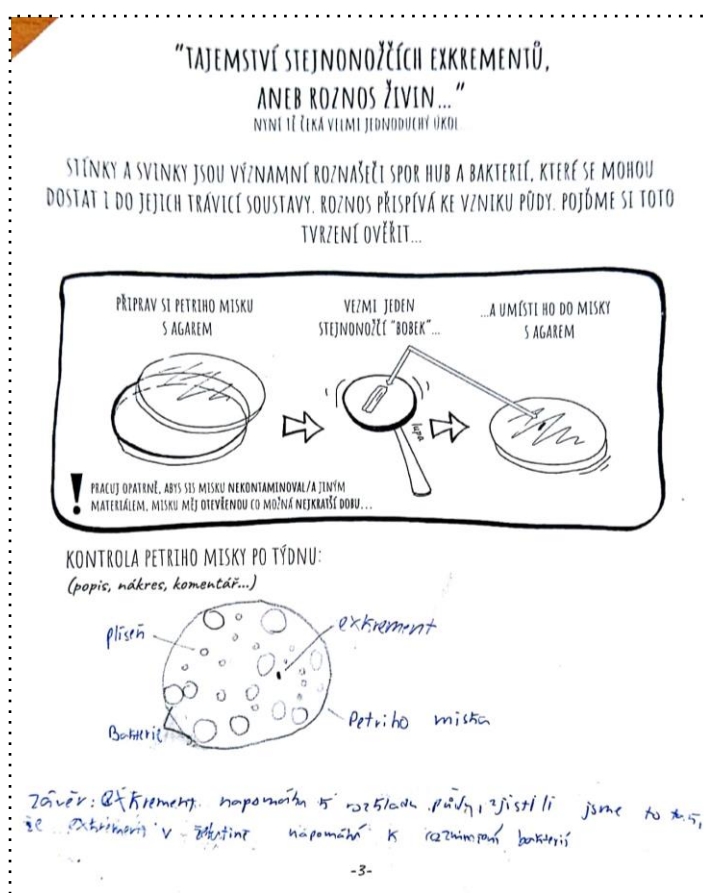 "TAJEMSTVÍ STEJNONOŽČÍCH EXKREMENTŮ,
ANEB ROZNOS ŽIVIN..."
NYNÍ TĚ ČEKÁ VELMI JEDNODUCHÝ ÚKOL
STÍNKY A SVINKY JSOU VÝZNAMNÍ ROZNAŠEČI SPOR HUB A BAKTERIÍ, KTERÉ SE MOHOU
DOSTAT I DO JEJICH TRÁVICÍ SOUSTAVY. ROZNOS PŘISPÍVÁ KE VZNIKU PŮDY. POJĎME SI TOTO
TVRZENÍ OVĚŘIT...
PŘIPRAV SI PETRIHO MISKU
S AGAREM
VEZMI JEDEN
STEJNONOŽČÍ "BOBEK"...
...A UMÍSTI HO DO MISKY
S AGAREM
lupa
! PRACUJ OPATRNĚ, ABYS SIS MISKU NEKONTAMINOVAL/A JINÝM
MATERIÁLEM, MISKU MĚJ OTEVŘENOU CO MOŽNÁ NEJKRATŠÍ DOBU...
KONTROLA PETRIHO MISKY PO TÝDNU:
(popis, nákres, komentář...)
plíseň
exkrement
Bakterie
Petriho miska
Závěr: exkrement napomáhá k rozkladu půdy, zjistili jsme to
že v napomáhá k bakterií
-3-